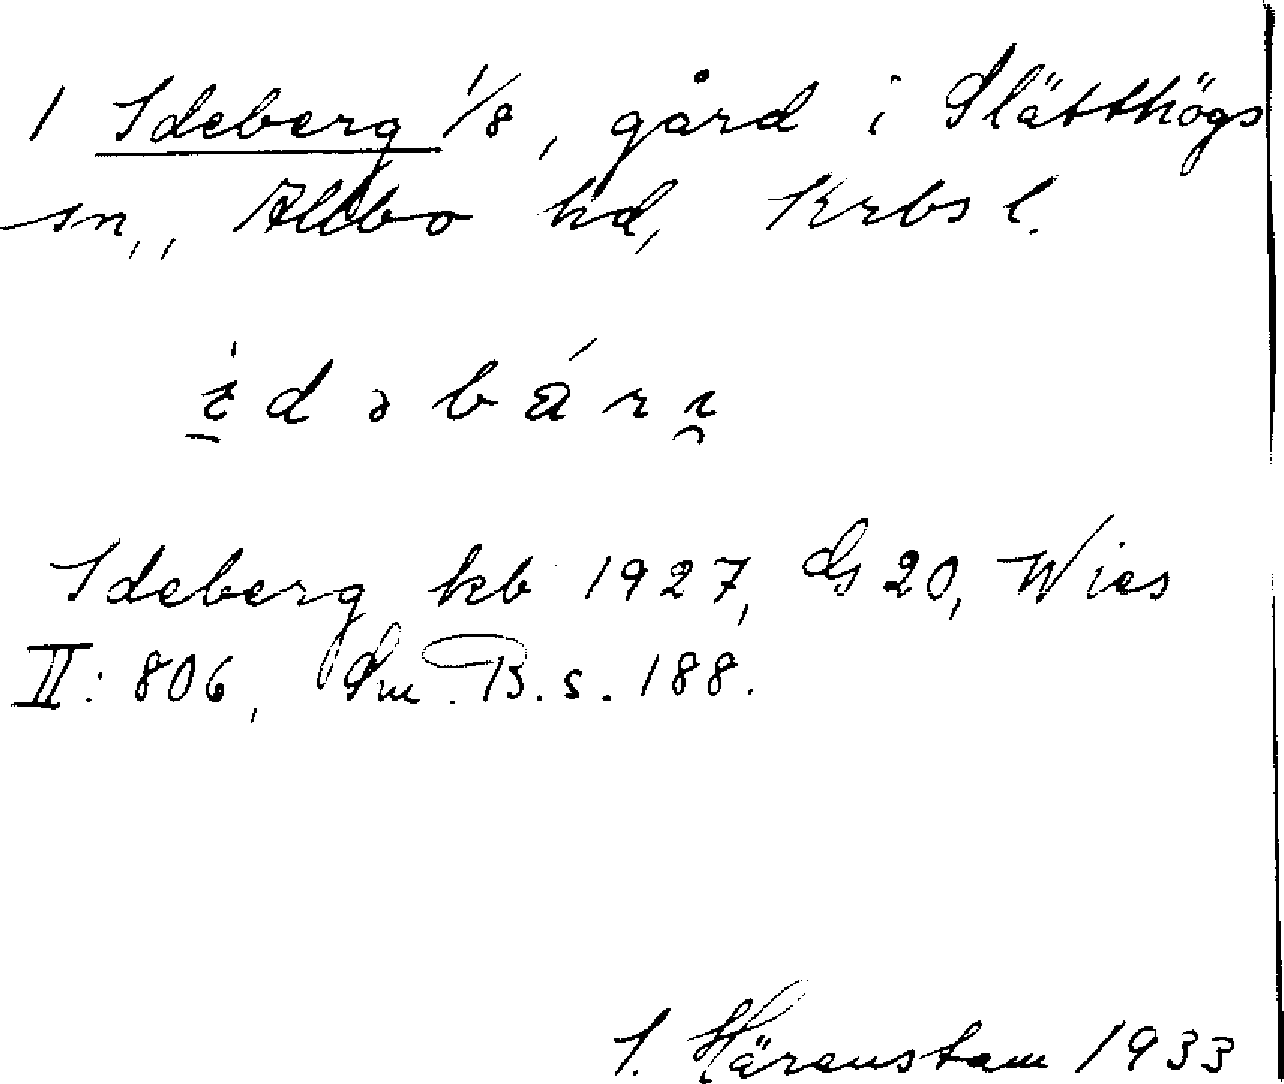 1 Ideberg 1/8, gård i Slätthögs
sn., Allbo hd, Krbs l.
i̱dəbárı̯
Ideberg kb 1927, GS 20, Wies
II: 806, Sm. B. s. 188.
I. Härenstam 1933